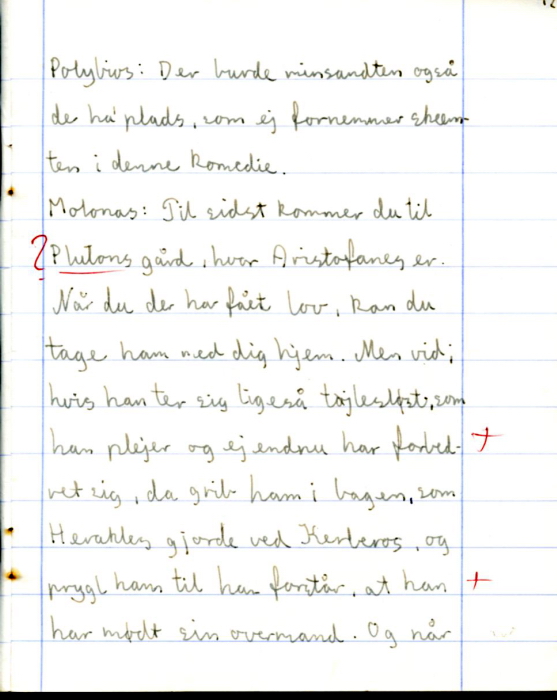 Polybios: Der burde minsandten også
de ha' plads, som ej fornemmer skem-
ten i denne komedie.
Molonas: Til sidst kommer du til
? Plutons gård, hvor Aristofanes er.
Når du der har fået lov, kan du
tage ham med dig hjem. Men vid;
hvis han ter sig ligeså tøjlesløst, som
han plejer og ej endnu har forbed- +
ret sig, da grib ham i bagen, som
Herakles gjorde ved Kerberos, og
prygl ham til han forstår, at han +
har mødt sin overmand. Og når